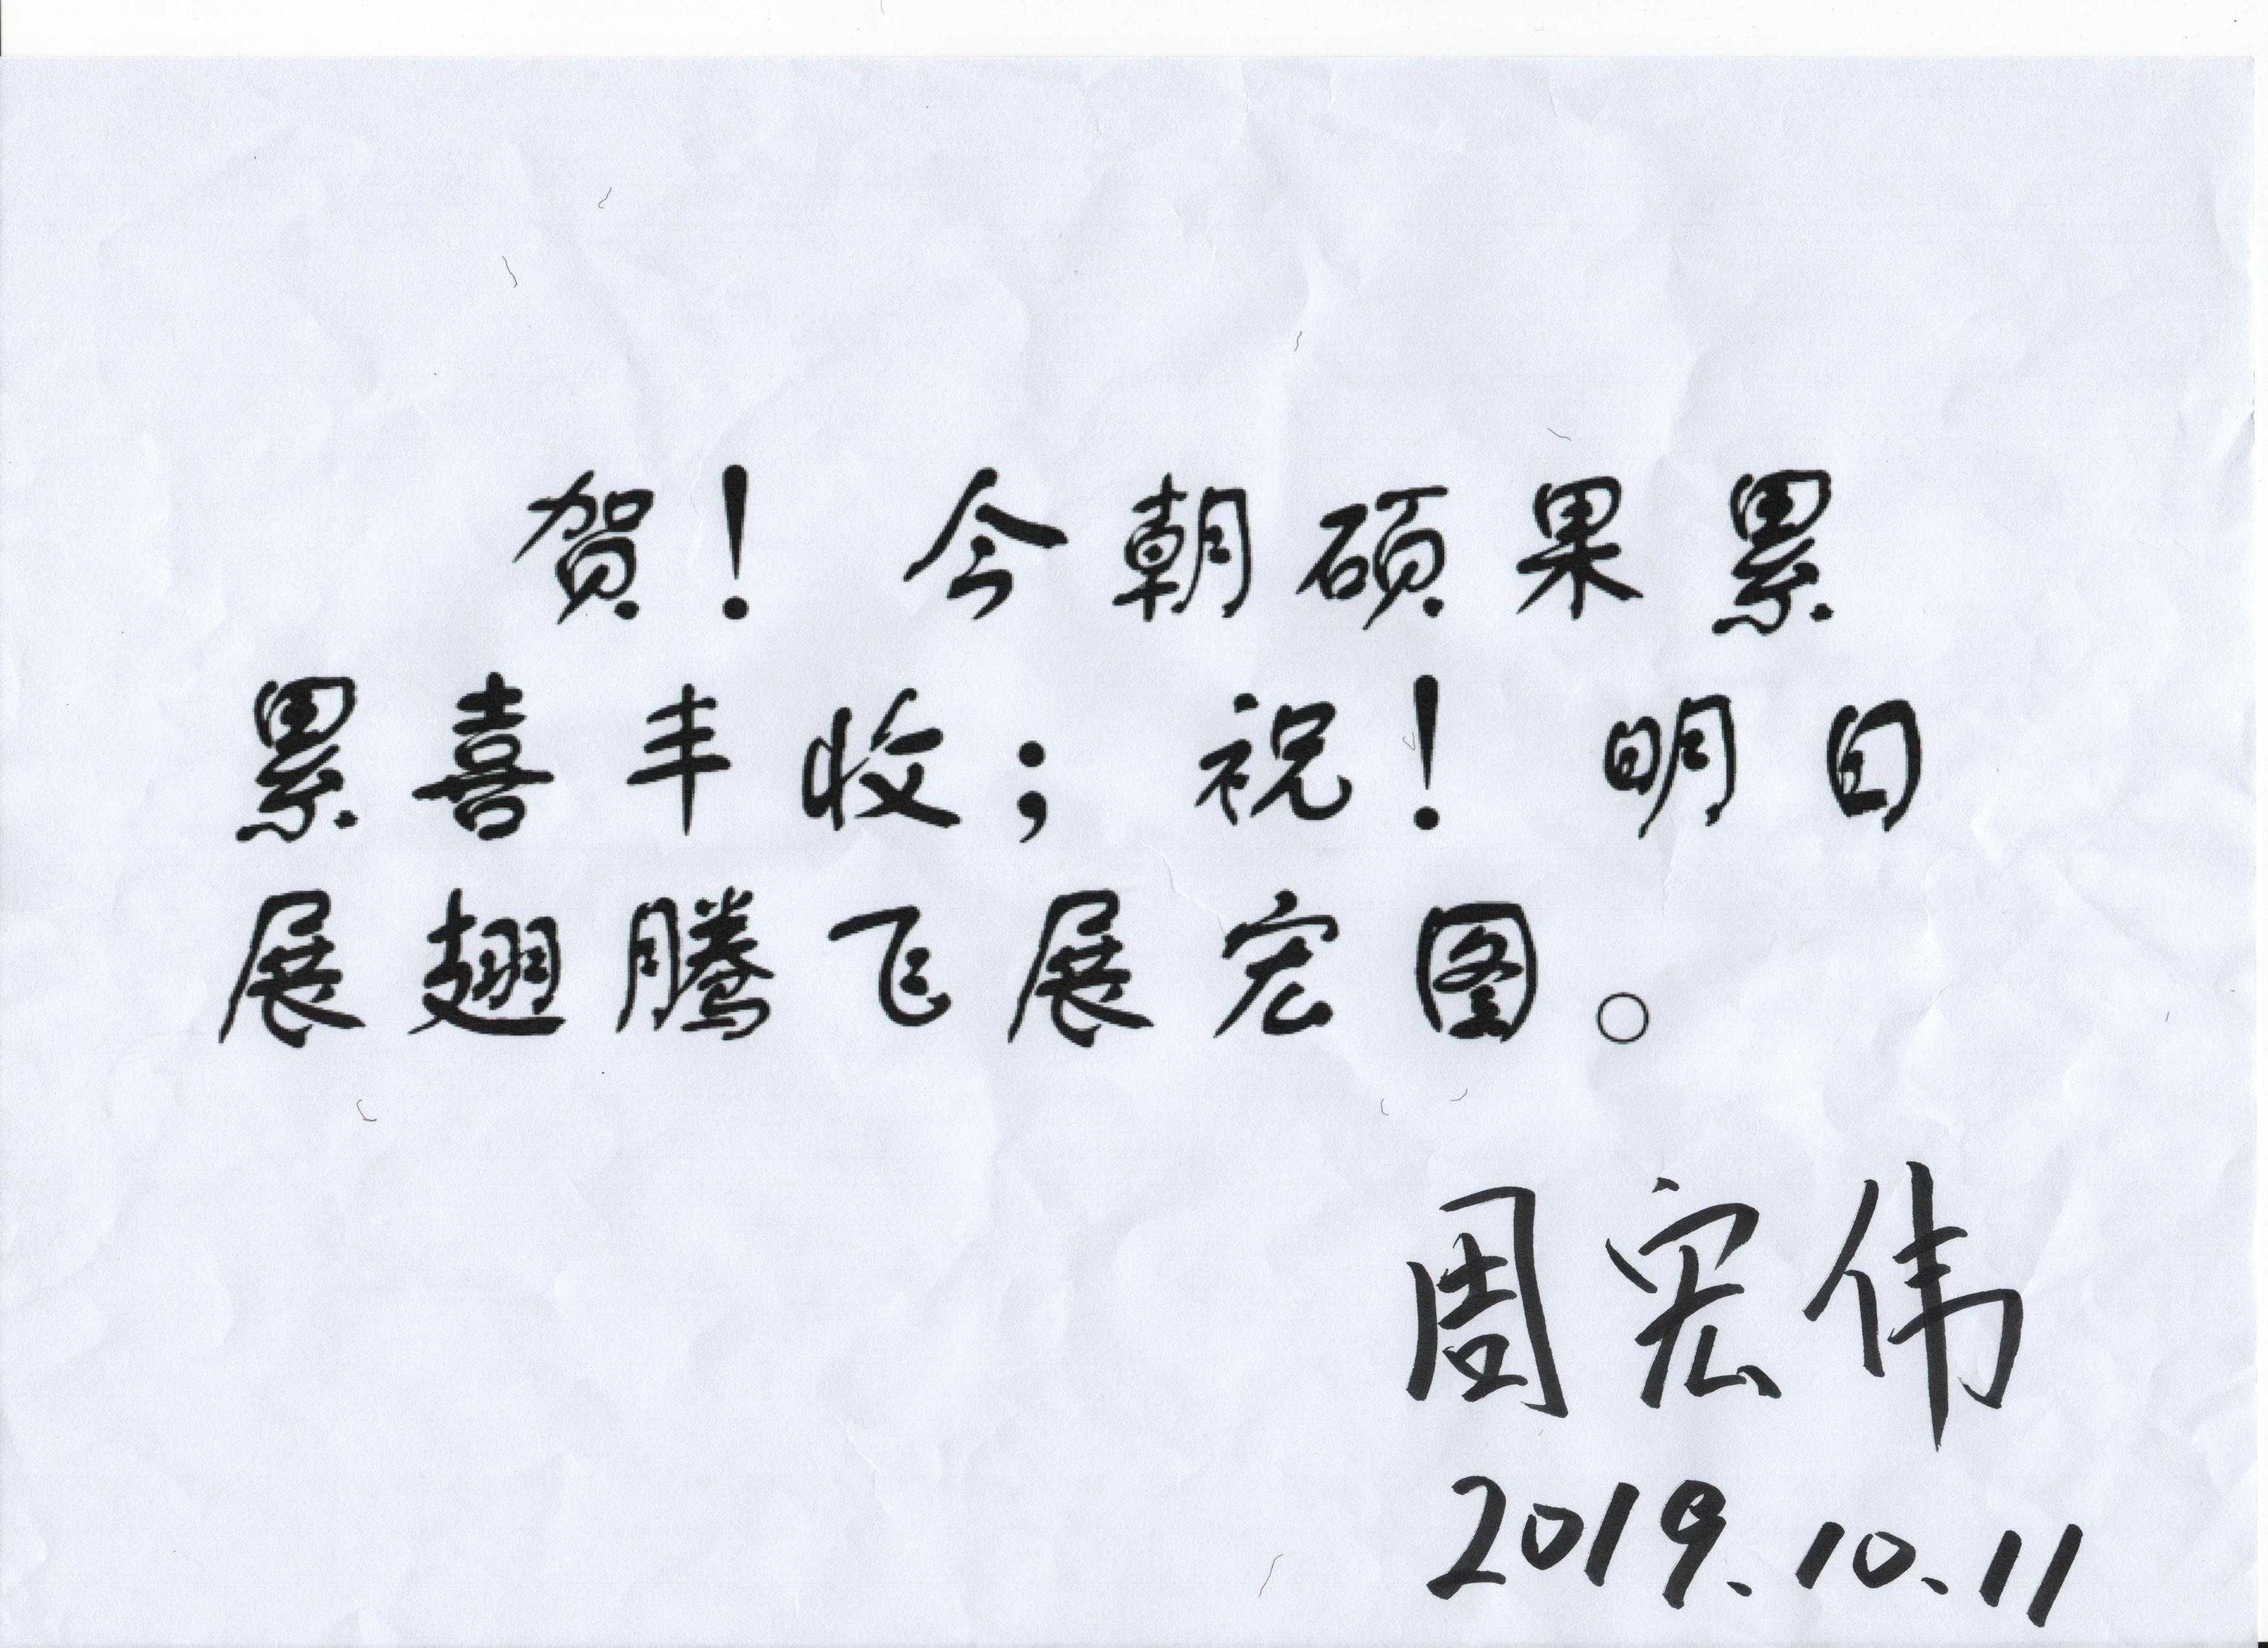 贺！今朝硕果累
累喜丰收；祝！明日
展翅腾飞展宏图。
周宏伟
2019.10.11